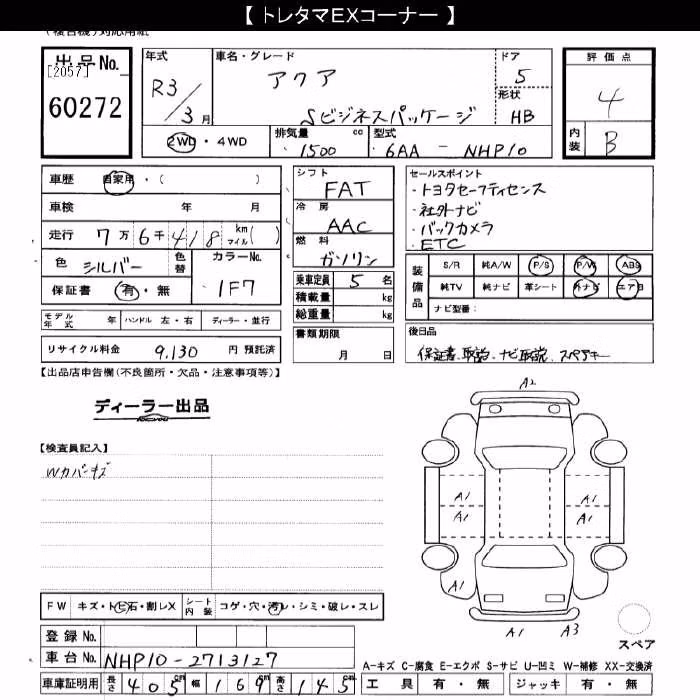 【 トレタマEXコーナー 】
(複合機)対応用紙
出品No.
[2057]
60272
年式
R3/3月
車名・グレード
アクア
Sビジネスパッケージ
ドア
5
形状
HB
評価点
4
内装
B
2WD・4WD
排気量
1500 cc
型式
6AA - NHP10
車歴 自家用・( )
車検 年 月
走行 7万6千418 km マイル( )
色 シルバー
色替
カラーNo.
1F7
保証書 有・無
モデル年式 年 ハンドル 左・右 ディーラー・並行
リサイクル料金 9,130 円 預託済
シフト
FAT
冷房
AAC
燃料
ガソリン
乗車定員 5 名
積載量 kg
総重量 kg
書類期限
月 日
セールスポイント
・トヨタセーフティセンス
・社外ナビ
・バックカメラ
・ETC
装備品
S/R 純A/W P/S P/W ABS
純TV 純ナビ 革シート 外ナビ エアB
ナビ型番:
後日品
保証書、取説、ナビ取説、スペアキー
【出品店申告欄(不良箇所・欠品・注意事項等)】
ディーラー出品
【検査員記入】
Wカバーキズ
A2
A1 A1
A1 A1
A1
A1 A3
スペア
FW キズ・トビ石・割レX
シート内装 コゲ・穴・汚レ・シミ・破レ・スレ
登録No.
車台No. NHP10-2713127
車庫証明用 長さ 405cm 幅 169cm 高さ 145cm
A-キズ C-腐食 E-エクボ S-サビ U-凹ミ W-補修 XX-交換済
工具 有・無 ジャッキ 有・無